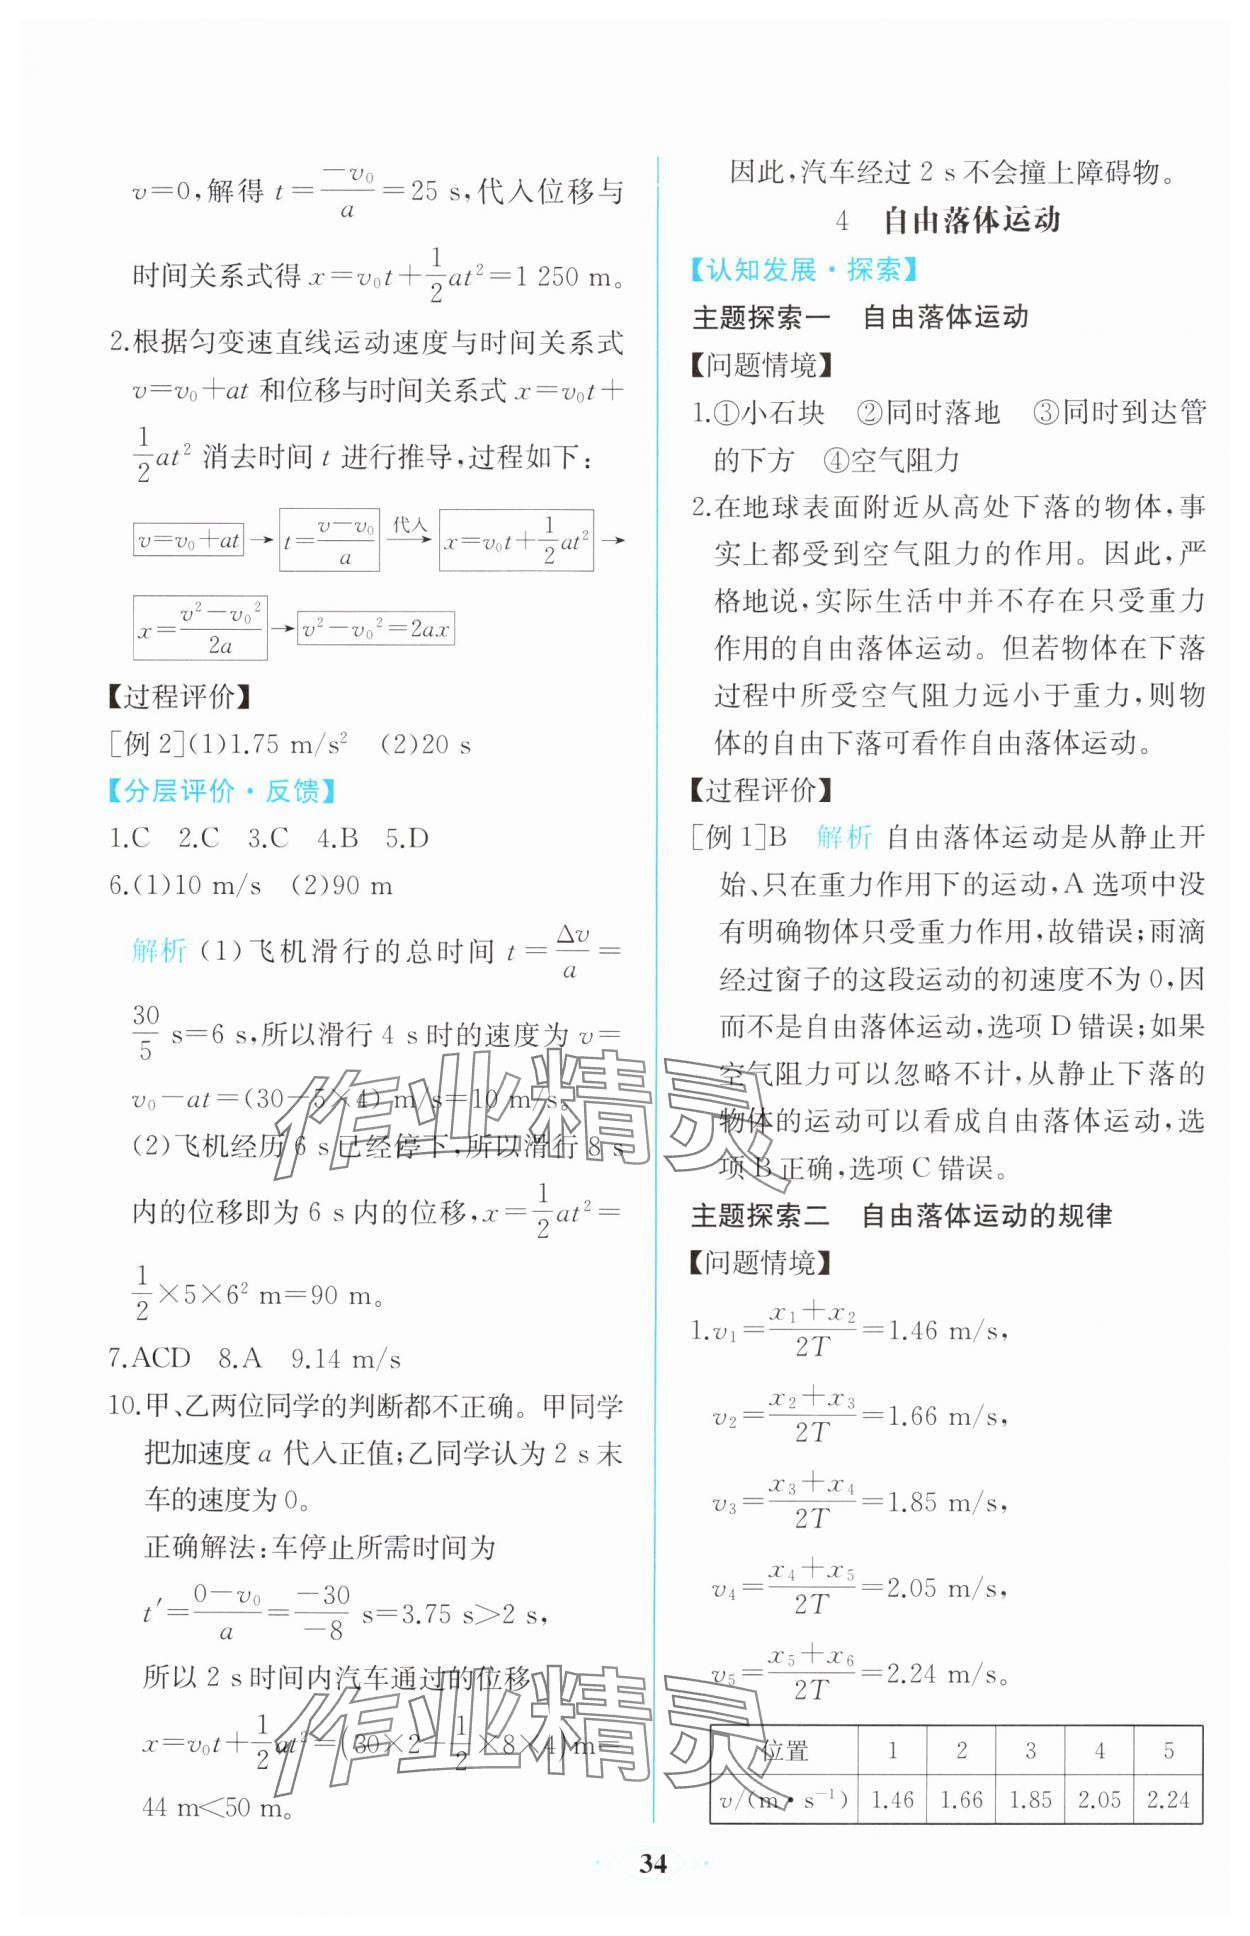 v=0,解得 t=\frac{-v₀}{a}=25 s,代入位移与
时间关系式得 x=v₀t+\frac{1}{2}at²=1 250 m。
2.根据匀变速直线运动速度与时间关系式
v=v₀+at 和位移与时间关系式 x=v₀t+
\frac{1}{2}at² 消去时间 t 进行推导,过程如下:
v=v₀+at → t=\frac{v-v₀}{a} 代入→ x=v₀t+\frac{1}{2}at² →
x=\frac{v²-v₀²}{2a} → v²-v₀²=2ax
【过程评价】
[例 2](1)1.75 m/s² (2)20 s
【分层评价·反馈】
1.C 2.C 3.C 4.B 5.D
6.(1)10 m/s (2)90 m
解析 (1)飞机滑行的总时间 t=\frac{Δv}{a}=
\frac{30}{5} s=6 s,所以滑行 4 s 时的速度为 v=
v₀-at=(30-5×4) m/s=10 m/s。
(2)飞机经历 6 s 已经停下,所以滑行 8 s
内的位移即为 6 s 内的位移,x=\frac{1}{2}at²=
\frac{1}{2}×5×6² m=90 m。
7.ACD 8.A 9.14 m/s
10.甲、乙两位同学的判断都不正确。甲同学
把加速度 a 代入正值;乙同学认为 2 s 末
车的速度为 0。
正确解法:车停止所需时间为
t′=\frac{0-v₀}{a}=\frac{-30}{-8} s=3.75 s>2 s,
所以 2 s 时间内汽车通过的位移
x=v₀t+\frac{1}{2}at²=(30×2-\frac{1}{2}×8×4)m=
44 m<50 m。
因此,汽车经过 2 s 不会撞上障碍物。
4 自由落体运动
【认知发展·探索】
主题探索一 自由落体运动
【问题情境】
1.①小石块 ②同时落地 ③同时到达管
的下方 ④空气阻力
2.在地球表面附近从高处下落的物体,事
实上都受到空气阻力的作用。因此,严
格地说,实际生活中并不存在只受重力
作用的自由落体运动。但若物体在下落
过程中所受空气阻力远小于重力,则物
体的自由下落可看作自由落体运动。
【过程评价】
[例 1]B 解析 自由落体运动是从静止开
始、只在重力作用下的运动,A 选项中没
有明确物体只受重力作用,故错误;雨滴
经过窗子的这段运动的初速度不为 0,因
而不是自由落体运动,选项 D 错误;如果
空气阻力可以忽略不计,从静止下落的
物体的运动可以看成自由落体运动,选
项 B 正确,选项 C 错误。
主题探索二 自由落体运动的规律
【问题情境】
1.v₁=\frac{x₁+x₂}{2T}=1.46 m/s,
v₂=\frac{x₂+x₃}{2T}=1.66 m/s,
v₃=\frac{x₃+x₄}{2T}=1.85 m/s,
v₄=\frac{x₄+x₅}{2T}=2.05 m/s,
v₅=\frac{x₅+x₆}{2T}=2.24 m/s。
位置 1 2 3 4 5
v/(m·s⁻¹) 1.46 1.66 1.85 2.05 2.24
34
作业精灵
作业精灵